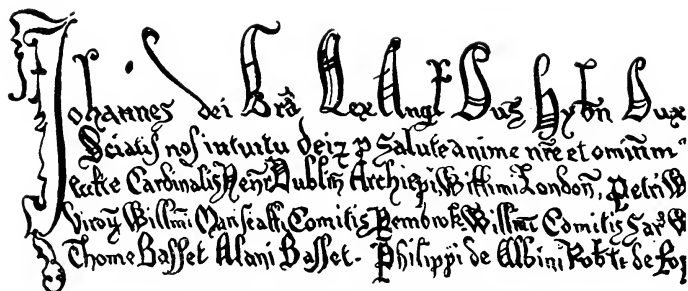 Johannes dei Grā Rex Angł Dus Hybn Dux
Sciatis nos intuitu dei ⁊ p salute anime nr̄e et omnium
eccłe Cardinalis Henr̄ Dubliñ Archiepi, Willimi Londoñ, Petri W
viroɽ Willmi Marscalli Comitis Pembroke Willmi Comitis Sar̄ W
Thome Basset Alani Basset. Philippi de Albini Robti de Rop